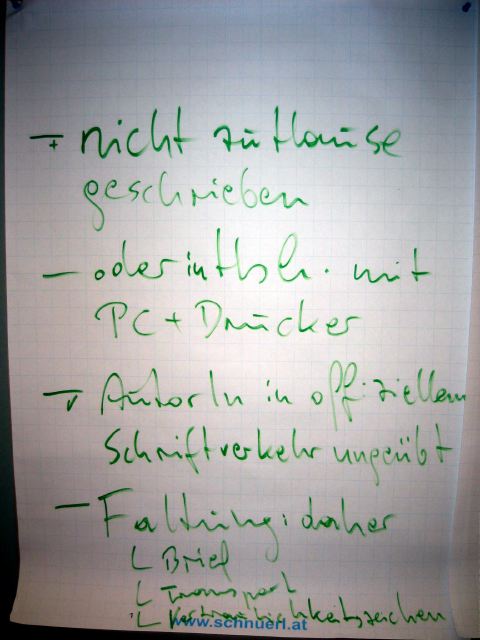 - nicht zu Hause
geschrieben
- oder in Hsh. mit
PC + Drucker
- AutorIn in offiziellem
Schriftverkehr ungeübt
- Faltung: daher
Brief
Transport
Vertraulichkeitszeichen
www.schnuerl.at